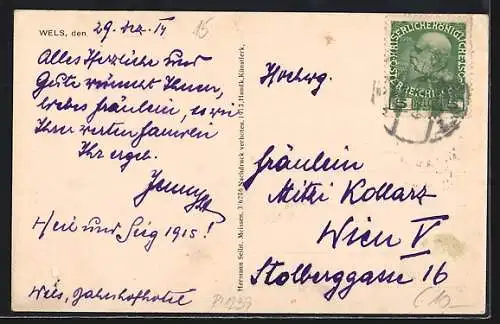 WELS, den 29. Dez. 14
15
Alles Herzliche und
Gute wünscht Ihnen,
liebes Fräulein, so wie
Ihrer werten Familie
Ihr ergeb.
Jenny
Heil und Sieg 1915!
Wels, Bahnhofhotel
Hermann Seibt, Meissen. Nachdruck verboten. 1913. Handk. Künstlerk.
Hochwg.
Fräulein
Mitzi Kollarz
Wien V
Stolberggasse 16
5